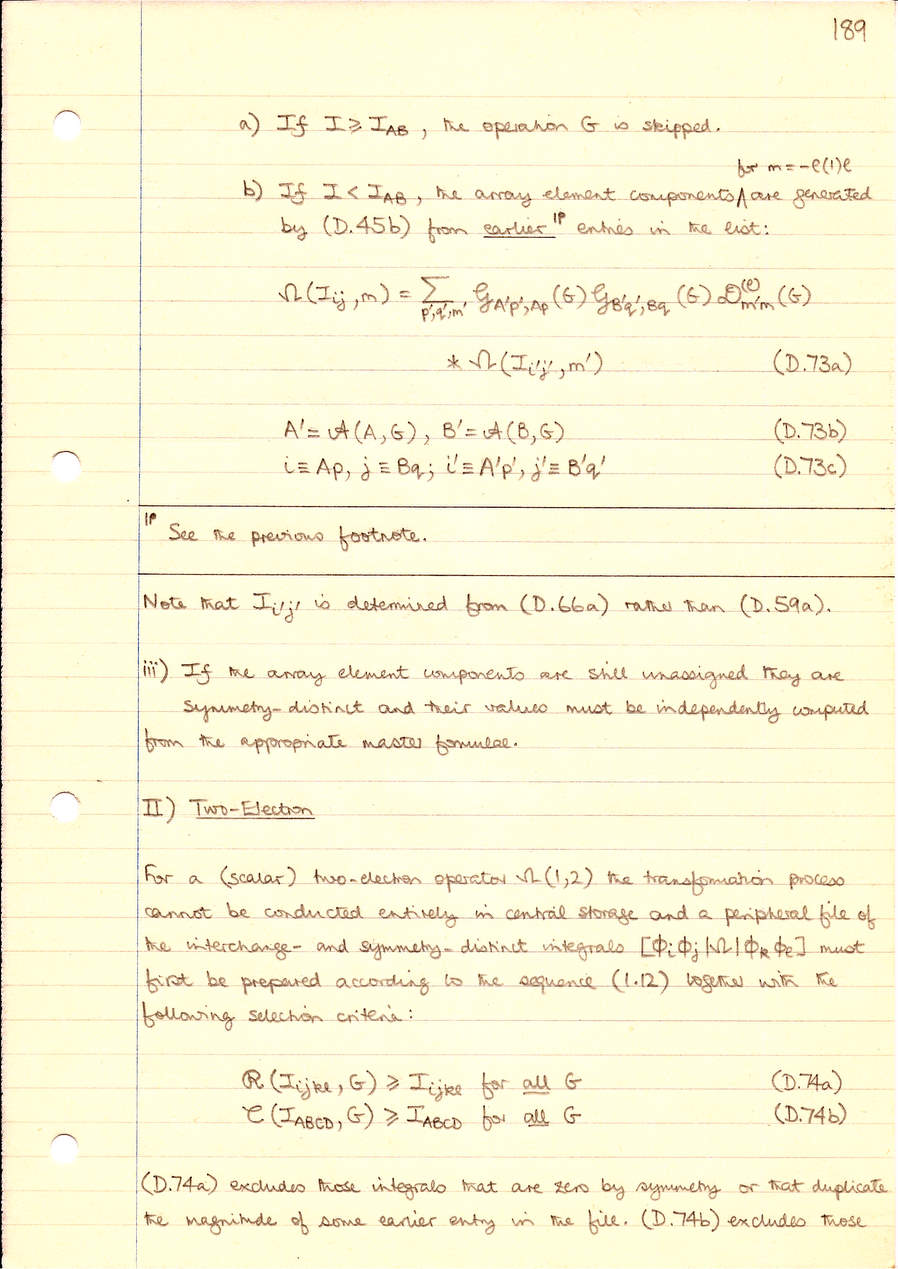 189
a) If I ⩾ I_AB , the operation G is skipped.
for m = -ℓ(1)ℓ
b) If I < I_AB , the array element components ∧ are generated
by (D.45b) from earlier ¶ entries in the list:
Ω(I_ij , m) = Σ_{p',q',m'} 𝒢_{A'p',Ap}(G) 𝒢_{B'q',Bq}(G) 𝒟^{(ℓ)}_{m'm}(G)
* Ω(I_i'j' , m') (D.73a)
A' = 𝒜(A,G) , B' = 𝒜(B,G) (D.73b)
i ≡ Ap, j ≡ Bq; i' ≡ A'p', j' ≡ B'q' (D.73c)
¶ See the previous footnote.
Note that I_i'j' is determined from (D.66a) rather than (D.59a).
iii) If the array element components are still unassigned they are
symmetry-distinct and their values must be independently computed
from the appropriate master formulae.
II) Two-Electron
For a (scalar) two-electron operator Ω(1,2) the transformation process
cannot be conducted entirely in central storage and a peripheral file of
the interchange- and symmetry-distinct integrals [ϕ_i ϕ_j |Ω| ϕ_k ϕ_ℓ] must
first be prepared according to the sequence (1.12) together with the
following selection criteria:
ℛ(I_ijkℓ , G) ⩾ I_ijkℓ for all G (D.74a)
𝒞(I_ABCD , G) ⩾ I_ABCD for all G (D.74b)
(D.74a) excludes those integrals that are zero by symmetry or that duplicate
the magnitude of some earlier entry in the file. (D.74b) excludes those